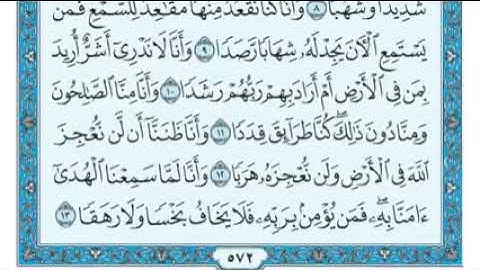 شَدِيدًا وَشُهُبًا ٨ وَأَنَّا كُنَّا نَقْعُدُ مِنْهَا مَقَٰعِدَ لِلسَّمْعِ فَمَن
يَسْتَمِعِ ٱلْأٓنَ يَجِدْ لَهُۥ شِهَابًا رَّصَدًا ٩ وَأَنَّا لَا نَدْرِىٓ أَشَرٌّ أُرِيدَ
بِمَن فِى ٱلْأَرْضِ أَمْ أَرَادَ بِهِمْ رَبُّهُمْ رَشَدًا ١٠ وَأَنَّا مِنَّا ٱلصَّٰلِحُونَ
وَمِنَّا دُونَ ذَٰلِكَ ۖ كُنَّا طَرَآئِقَ قِدَدًا ١١ وَأَنَّا ظَنَنَّآ أَن لَّن نُّعْجِزَ
ٱللَّهَ فِى ٱلْأَرْضِ وَلَن نُّعْجِزَهُۥ هَرَبًا ١٢ وَأَنَّا لَمَّا سَمِعْنَا ٱلْهُدَىٰٓ
ءَامَنَّا بِهِۦ ۖ فَمَن يُؤْمِنۢ بِرَبِّهِۦ فَلَا يَخَافُ بَخْسًا وَلَا رَهَقًا ١٣
٥٧٢